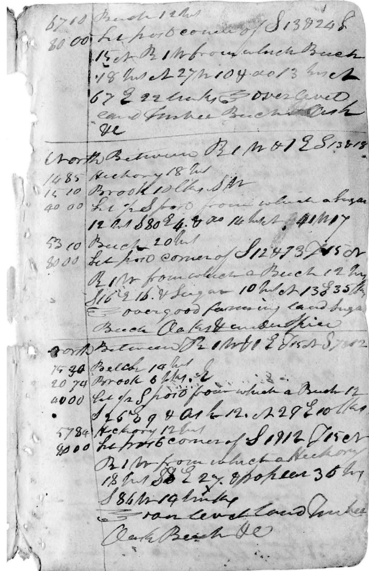 Beech 12 ins
80 00 Set post corner of S 13 & 24 T
15 N R 1 W from which Beech
18 ins N 27 W 10 & do 13 ins N
67 E 22 links over level
land timber Beech Ash
&c
North Between R 1 W & 1 E S 13 & 18
14 85 Hickory 18 ins
15 10 Brook 10 lks S W
40 00 Set ¼ S post from which a Sugar
12 ins S 80 E & do 14 ins N 41 W 17
53 10 Beech 20 ins
80 00 Set post corner of S 12 & 13 T 15 N
R 1 W from which a Beech 12 ins
S 16 E 16 & Sugar 10 ins N 13 E 35 lks
over good farming land Sugar
Beech Oak &
North Between R 1 W & 1 E T 15 N S 7 & 12
Beech 14 ins
20 74 Brook 6 lks
40 00 Set ¼ S post from which a Beech 12
S 26 E 9 & Ash 12 N 27 E 10 lks
57 84 Hickory 12 ins
80 00 Set post corner of S 1 & 12 T 15 N
R 1 W from which a Hickory
18 ins E 27 & poplar 30 ins
S 86 W 19 links
over level land timber
Oak Beech &c